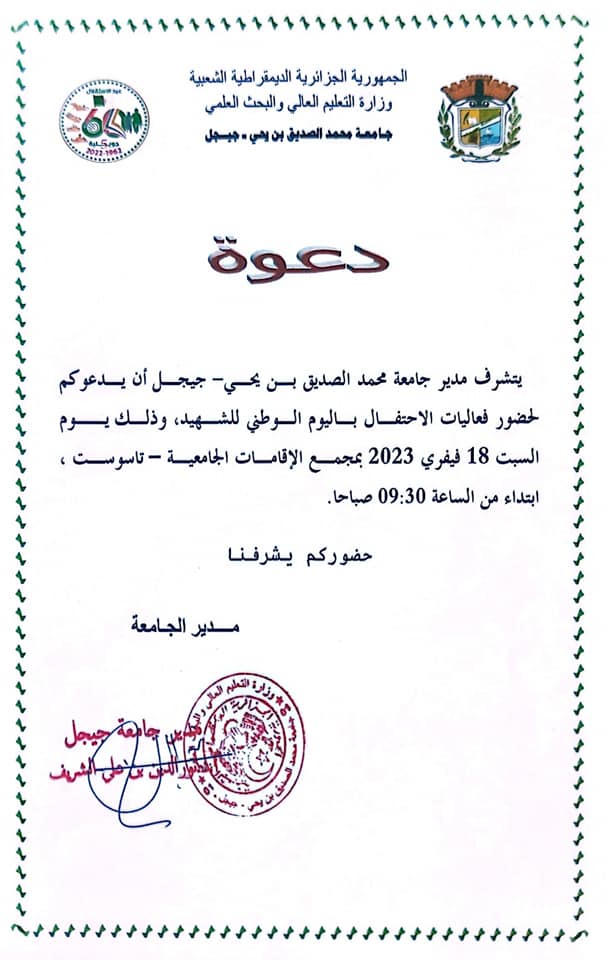 الجمهورية الجزائرية الديمقراطية الشعبية
وزارة التعليم العالي والبحث العلمي
جامعة محمد الصديق بن يحي - جيجل
عيد الاستقلال
60
2022-1962
دعوة
يتشرف مدير جامعة محمد الصديق بن يحي– جيجل أن يدعوكم
لحضور فعاليات الاحتفال باليوم الوطني للشهيد، وذلك يوم
السبت 18 فيفري 2023 بمجمع الإقامات الجامعية – تاسوست ،
ابتداء من الساعة 09:30 صباحا.
حضوركم يشرفنا
مدير الجامعة
وزارة التعليم العالي والبحث
جامعة محمد الصديق بن يحي - جيجل
مدير جامعة جيجل
الدين بن علي الشريف